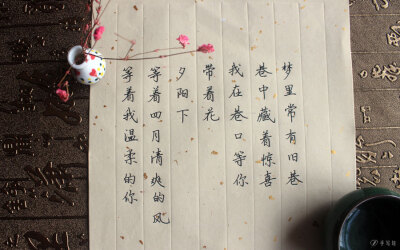 梦里常有旧巷
巷中藏着惊喜
我在巷口等你
带着花
夕阳下
等着四月清爽的风
等着我温柔的你